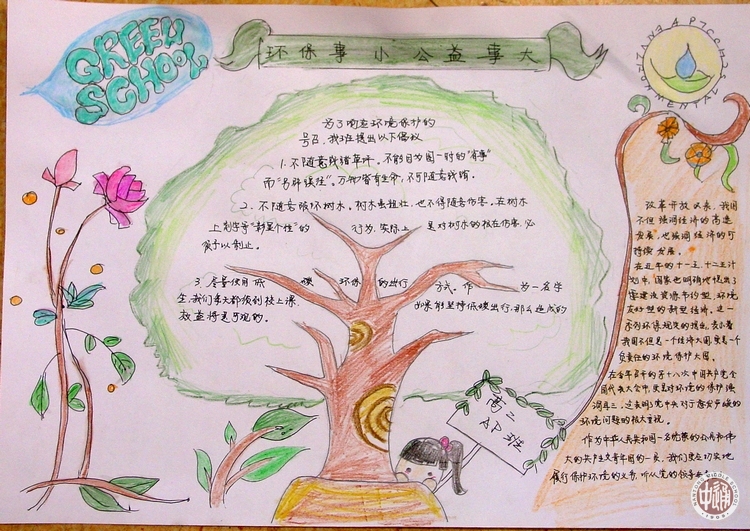 GREEN
SCHOOL
环保事小公益事大
ENVIRONMENTAL
为了响应环境保护的
号召,我班提出以下倡议
1.不随意践踏草坪。不能因为图一时的"省事"
而"另辟蹊径"。万物皆有生命,不可随意践踏。
2.不随意破坏树木。树木虽粗壮,也不得随意伤害。在树木
上刻字等"彰显个性"的 行为,实际上 是对树木的极在伤害,必
须予以制止。
3.尽量使用低 碳 环保 的出行 方式。作 为一名学
生,我们每天都须到校上课, 如果能坚持低碳出行,那么造成的
效益将是可观的。
高二
AP班
改革开放以来,我国
不但强调经济的高速
发展,也强调经济的可
持续发展。
在近年的十一五、十二五计
划中,国家也明确地提出了
要建设资源节约型、环境
友好型的新型经济。这一
系列环保规定的提出,表示着
我国不但是一个经济大国,更是一个
负责任的环境保护大国。
在今年召开的第十八次中国共产党全
国代表大会中,更是对环境的保护强
调再三。这表明了党中央对于愈发严峻的
环境问题的极大重视。
作为中华人民共和国一名优秀的公民和伟
大的共产主义青年团的一员,我们更应切实地
履行保护环境的义务,听从党的领导